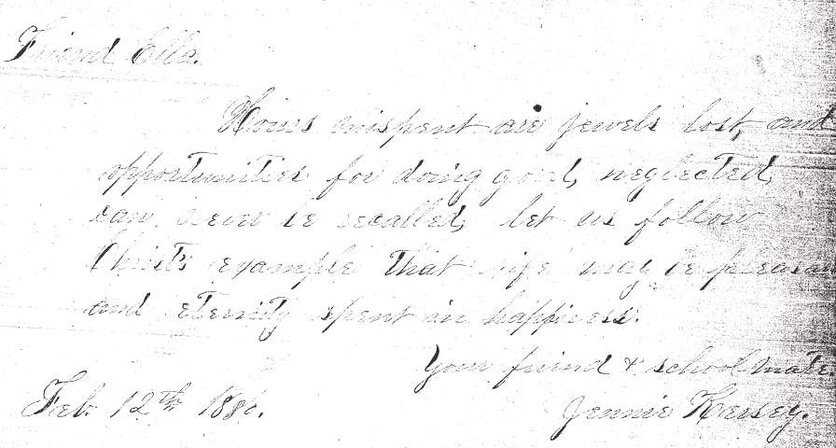 Friend Ella.
Hours misspent are jewels lost, and
opportunities for doing good, neglected,
can never be recalled, let us follow
Christ's example that life may be pleasant
and eternity spent in happiness.
Your friend & school mate
Feb. 12th
Jennie Kersey.